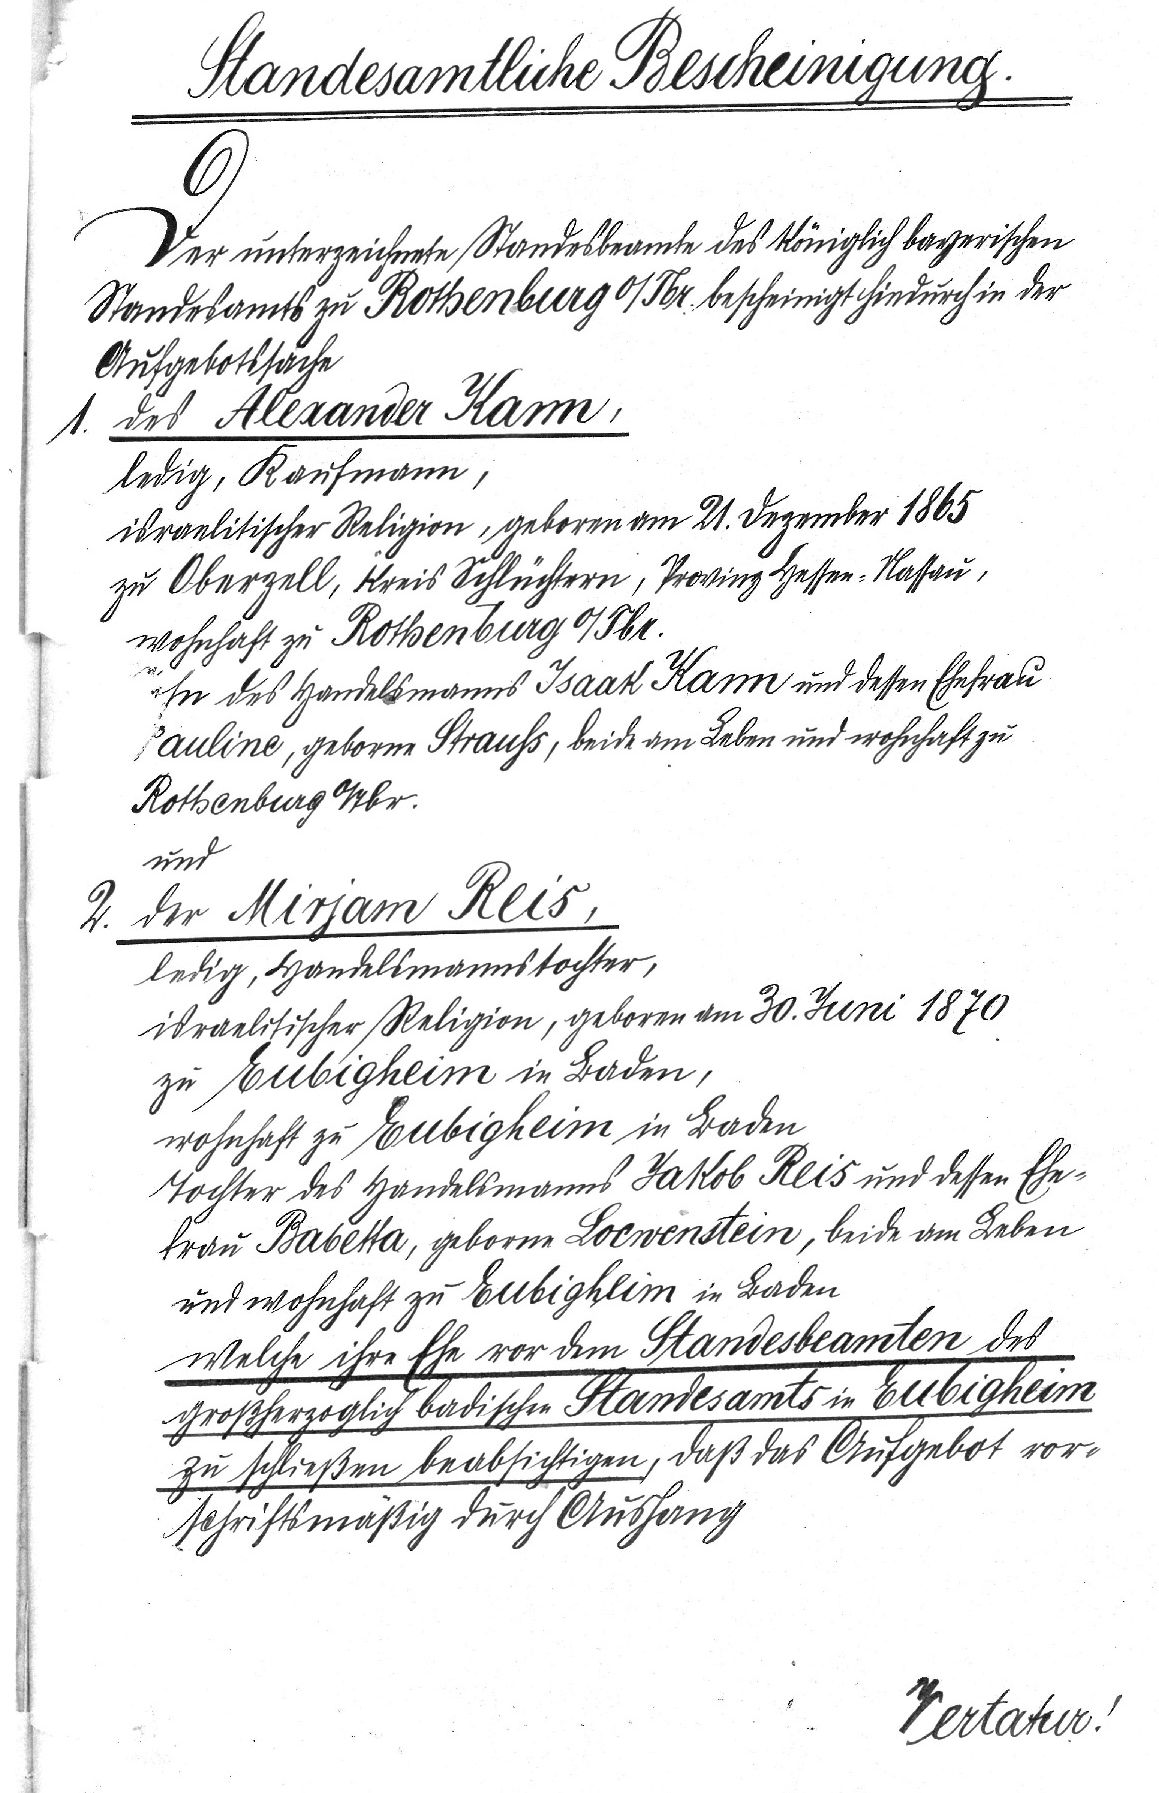 Standesamtliche Bescheinigung.
Der unterzeichnete Standesbeamte des Königlich bayerischen
Standesamts zu Rothenburg o/Tbr. bescheinigt hiedurch in der
Aufgebotssache
1. des Alexander Kann,
ledig, Kaufmann,
israelitischer Religion, geboren am 21. Dezember 1865
zu Oberzell, Kreis Schlüchtern, Provinz Hessen-Nassau,
wohnhaft zu Rothenburg o/Tbr.
ohn des Handelsmanns Isaak Kann und dessen Ehefrau
Pauline, geborne Strauss, beide am Leben und wohnhaft zu
Rothenburg o/Tbr.
und
2. der Mirjam Reis,
ledig, Handelsmannstochter,
israelitischer Religion, geboren am 30. Juni 1870
zu Eubigheim in Baden,
wohnhaft zu Eubigheim in Baden
Tochter des Handelsmanns Jakob Reis und dessen Ehe-
frau Babetta, geborne Loewenstein, beide am Leben
und wohnhaft zu Eubigheim in Baden
welche ihre Ehe vor dem Standesbeamten des
großherzoglich badischen Standesamts in Eubigheim
zu schließen beabsichtigen, daß das Aufgebot vor-
schriftsmäßig durch Aushang
Vertatur!